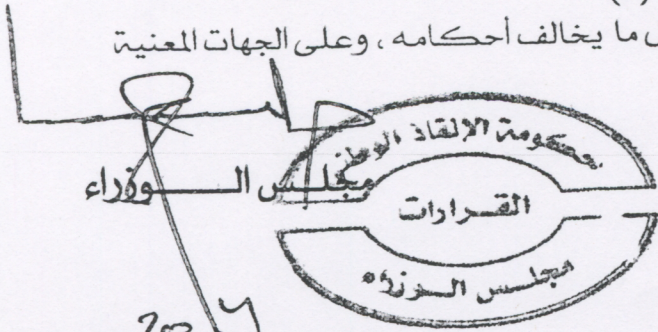 ما يخالف أحكامه ، وعلى الجهات المعنية
مجلس الـــوزراء
حكومة الإنقاذ الوطني
القــرارات
مجلــس الــوزراء